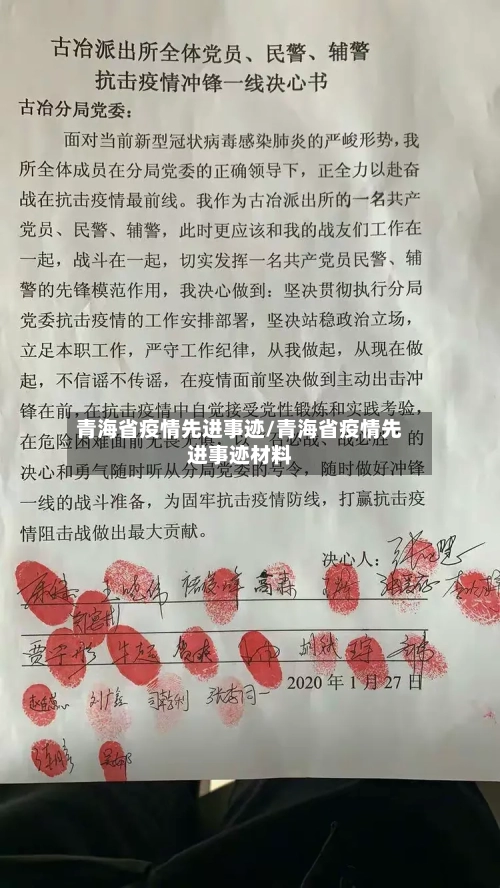 古冶派出所全体党员、民警、辅警
抗击疫情冲锋一线决心书
古冶分局党委：
面对当前新型冠状病毒感染肺炎的严峻形势，我
所全体成员在分局党委的正确领导下，正全力以赴奋
战在抗击疫情最前线。我作为古冶派出所的一名共产
党员、民警、辅警，此时更应该和我的战友们工作在
一起，战斗在一起，切实发挥一名共产党员民警、辅
警的先锋模范作用，我决心做到：坚决贯彻执行分局
党委抗击疫情的工作安排部署，坚决站稳政治立场，
立足本职工作，严守工作纪律，从我做起，从现在做
起，不信谣不传谣，在疫情面前坚决做到主动出击冲
锋在前，在抗击疫情中自觉接受党性锻炼和实践考验，
青海省疫情先进事迹/青海省疫情先
进事迹材料
在危险困难面前
的
决心和勇气随时听从分局党委的号令，随时做好冲锋
一线的战斗准备，为固牢抗击疫情防线，打赢抗击疫
情阻击战做出最大贡献。
决心人：
2020 年 1 月 27 日